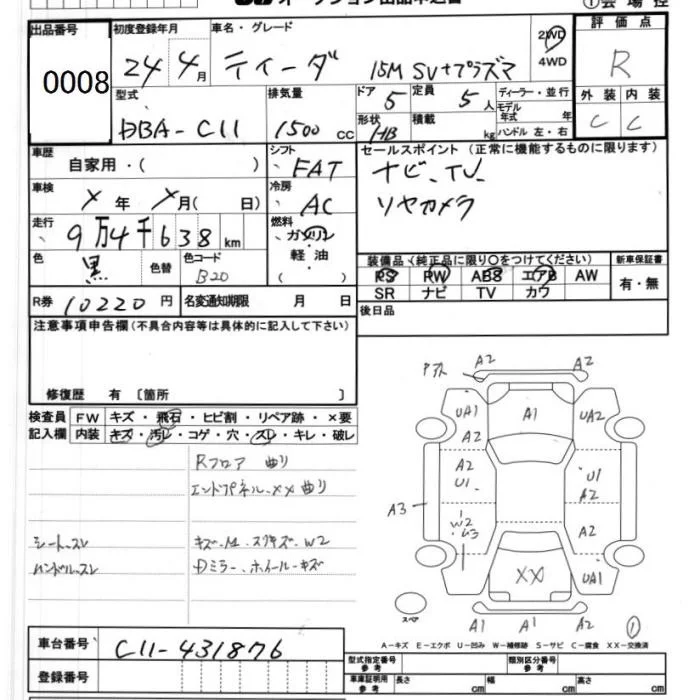 オークション出品申込書
①会場控
出品番号 0008
初度登録年月 24 4月
車名・グレード ティーダ 15M SV+プラズマ
2WD
4WD
評価点 R
外装 内装
C C
型式 DBA-C11
排気量 1500 CC
ドア 5
定員 5人
形状 HB
積載 kg
ディーラー・並行
モデル年式 年
ハンドル 左・右
車歴 自家用・( )
シフト FAT
車検 X年 X月( 日)
冷房 AC
走行 9万4千638km
燃料 ガソリン・軽油 ( )
色 黒 色替
色コード B20
R券 10220円
名変通知期限 月 日
セールスポイント (正常に機能するものに限ります)
ナビ、TV、
リヤカメラ
装備品 (純正品に限り○をつけてください)
新車保証書
PS PW ABS エアB AW
有・無
SR ナビ TV カワ
後日品
注意事項申告欄(不具合内容等は具体的に記入して下さい)
修復歴 有 〔箇所 〕
検査員記入欄
FW キズ・飛石・ヒビ割・リペア跡・×要
内装 キズ・汚レ・コゲ・穴・スレ・キレ・破レ
Rフロア 曲り
エンドパネル-XX 曲り
シート-スレ
キズ-M.スリキズ-W2
ハンドル-スレ
Dミラー、ホイール-キズ
A2 A2
UA1 A1 UA2
A2
A2 U1
U1 A2
A3
W2 A2
XX UA1
スペア
A1 A1 A2
①
A-キズ E-エクボ U-凹み W-補修跡 S-サビ C-腐食 XX-交換済
車台番号 C11-431876
登録番号
型式指定番号 参考
類別区分番号 参考
車庫証明用 参考 長さ cm 幅 cm 高さ cm